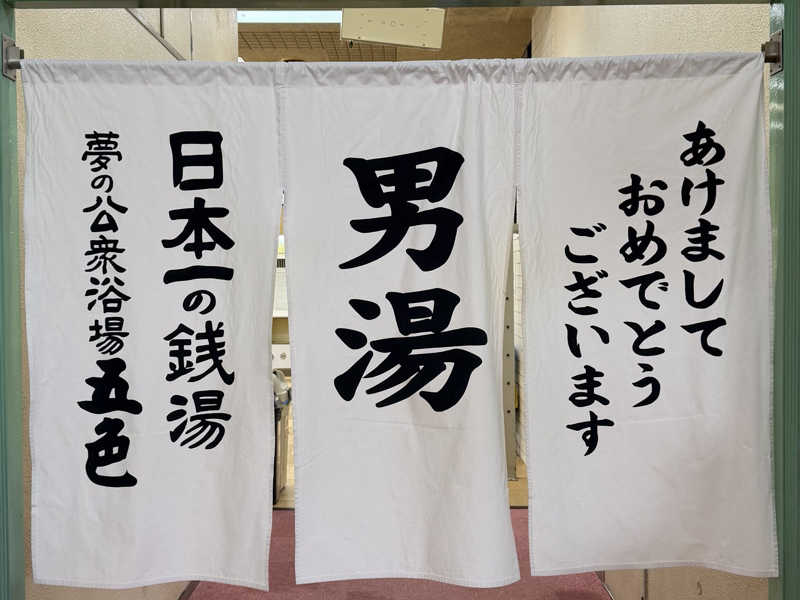 あけまして
おめでとう
ございます
男湯
日本一の銭湯
夢の公衆浴場五色